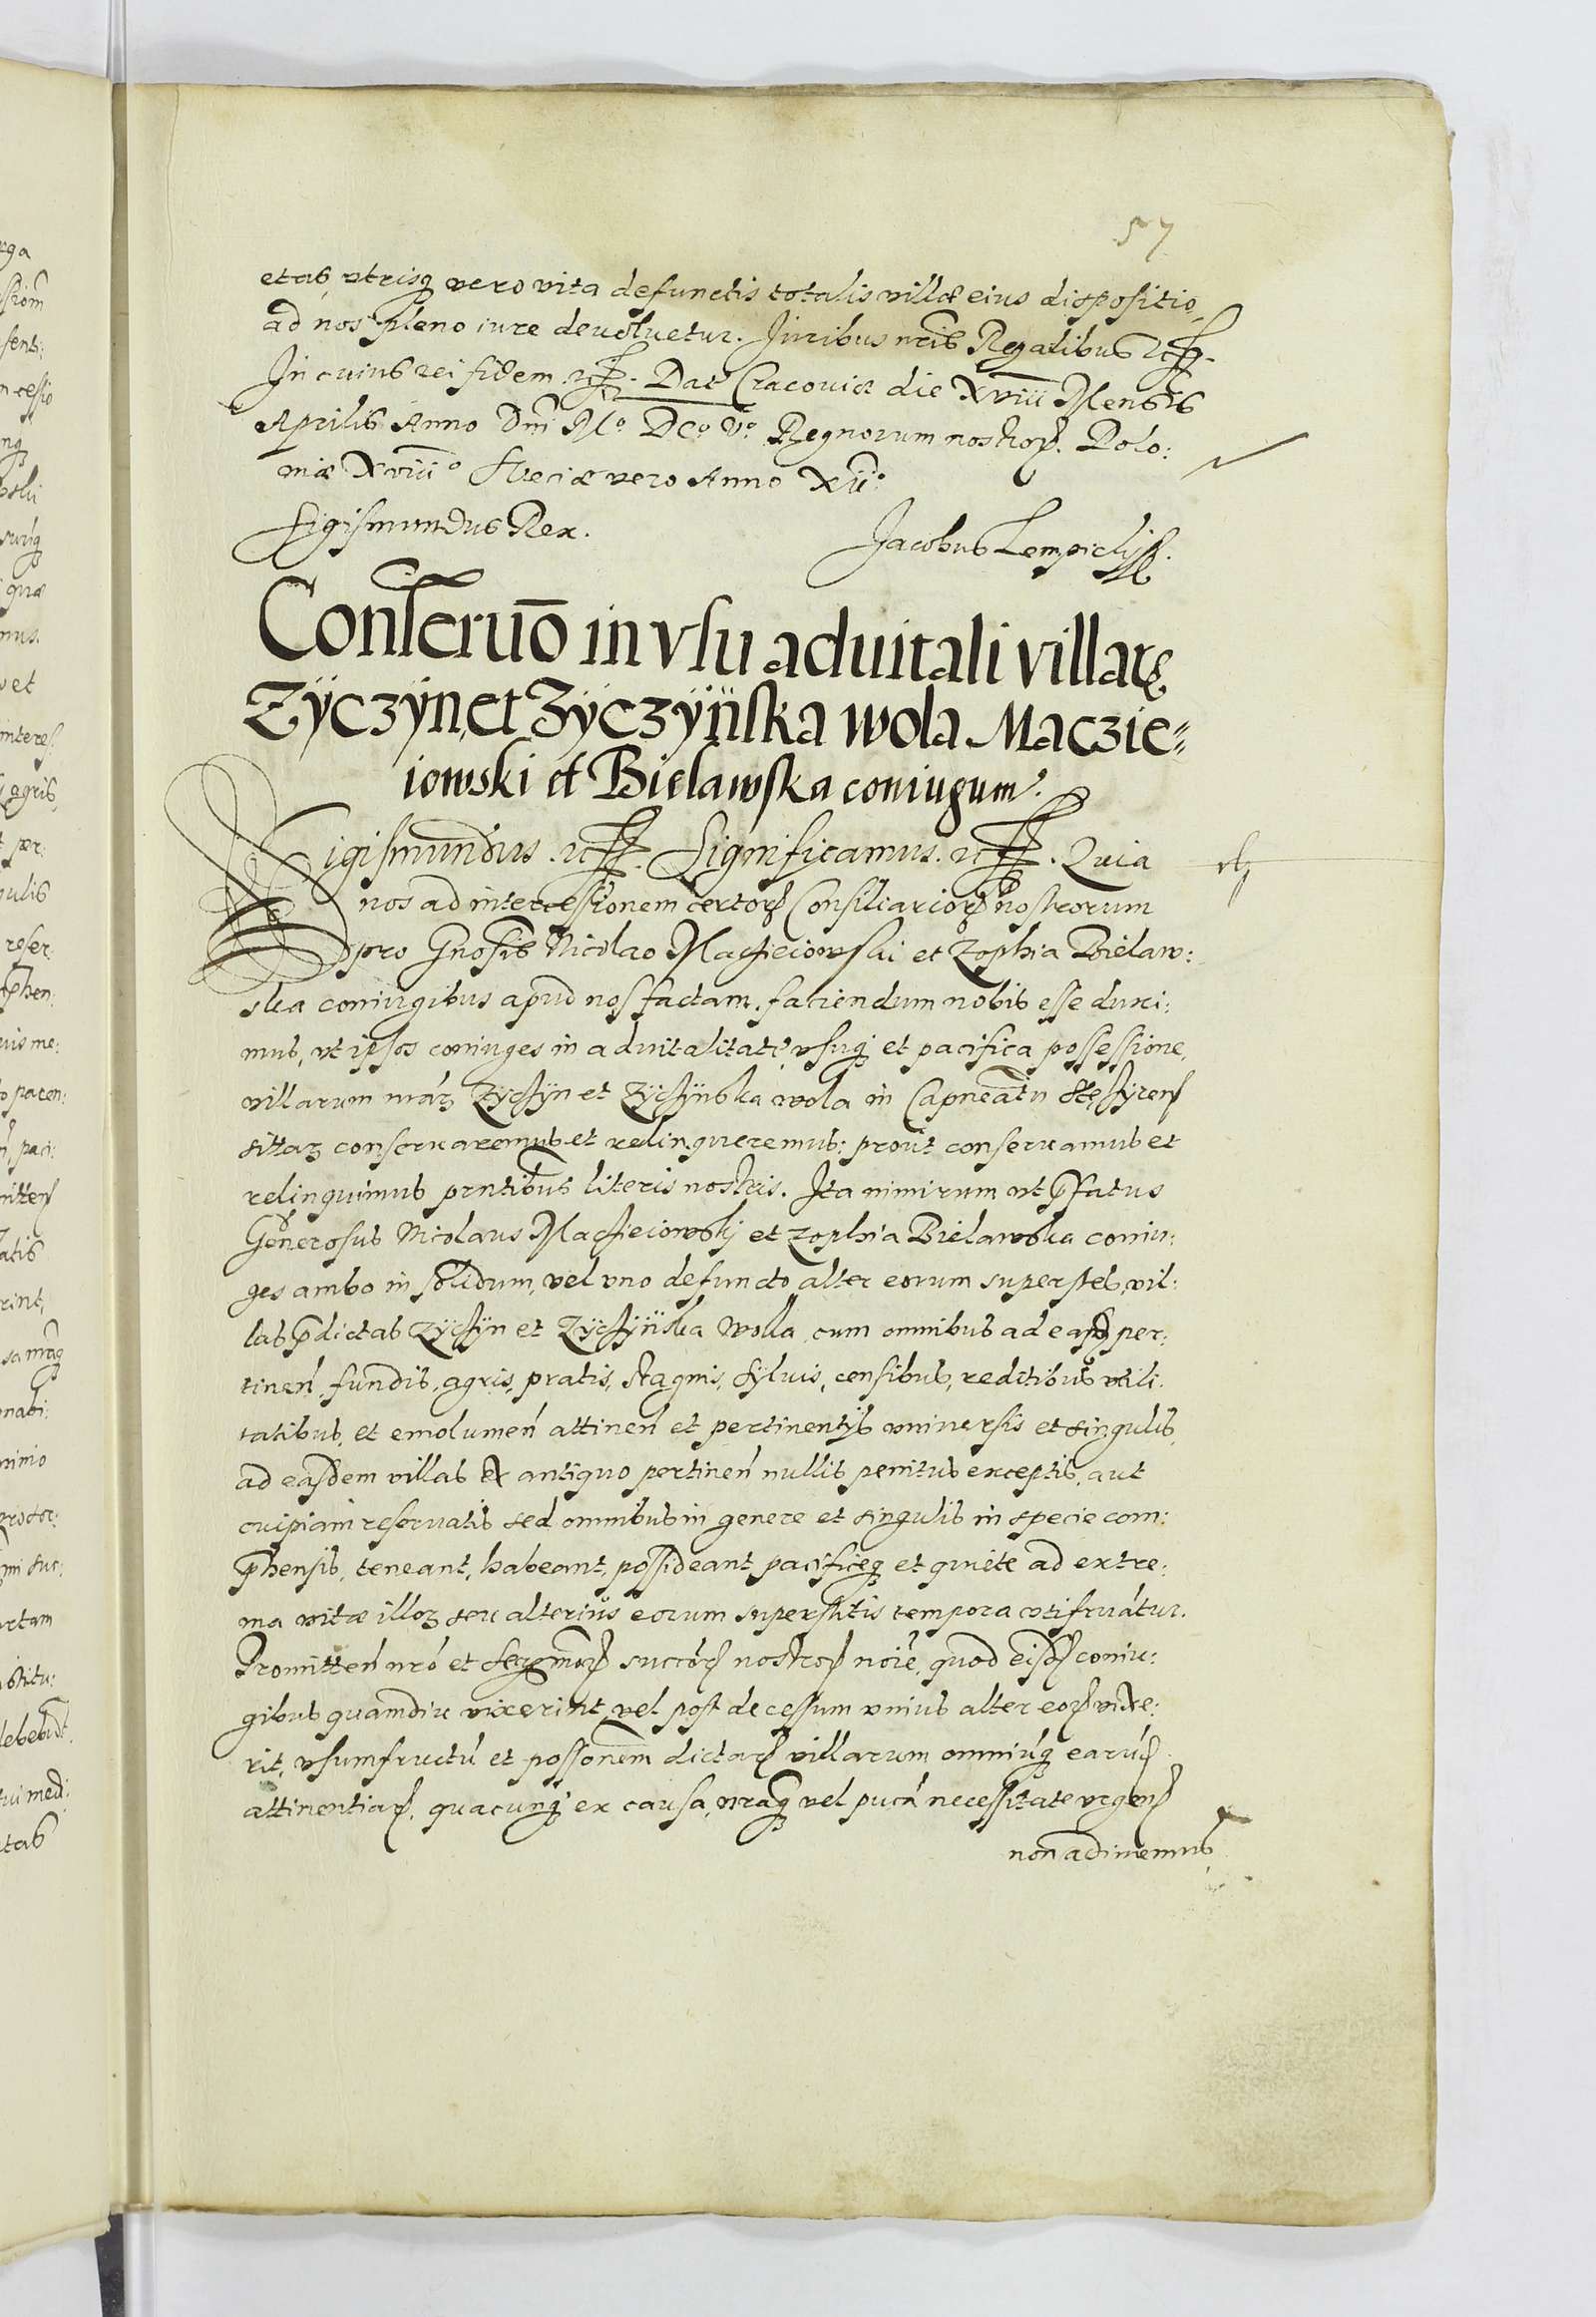 57
etas, vtrisq vero vita defunctis totalis villæ eius dispositio,
ad nos pleno iure devoluetur. Juribus nrīs Regalibus etc.
In cuius rei fidem etc. Dat Cracoviæ die XVIII Mensis
Aprilis Anno Dni Mº DCº Vº Regnorum nostror. Polo:
niæ XVIIIº Sveciæ vero Anno XIIº
Sigismundus Rex. Jacobus Lempicki
Conseruō in vsu aduitali villar
Zÿczÿn, et Zÿczÿńska wola Maczie=
iowski et Bielawska coniugum.
Sigismundus etc. Significamus etc. Quia
nos ad intercessionem certor Consiliarior nostrorum
pro Gnosis Nicolao Maciieiowski et Zophia Bielaw:
ska coniugibus apud nos factam, faciendum nobis esse duxi:
mus, vt ipsos coniuges in aduitalitate, vsuq et pacifica possessione,
villarum nrar Zÿczÿn et Zÿczÿnska wola in Capneatu Stezÿcen
sitar conseruaremus et relinqueremus: prout conseruamus et
relinquimus pntibus literis nostris. Ita nimirum vt pfatus
Generosus Nicolaus Maciieiowskj et Zophia Bielawska coniu:
ges ambo in solidum, vel vno defuncto alter eorum superstes, vil:
las pdictas Zÿczÿn et Zÿczÿńska Wolla, cum omnibus ad easd per:
tinen, fundis, agris, pratis, stagnis, sÿluis, censibus, reditibus vtili:
tatibus, et emolumen attinen et pertinentÿs vniuersis et singulis,
ad easdem villas ex antiquo pertinen nullis penitus exceptis, aut
cuipiam reseruatis sed omnibus in genere et singulis in specie com:
phensis, teneant, habeant, possideant pacificeq et quiete ad extre:
ma vitæ illor seu alterius eorum superstitis tempora vtifruātur.
Promitten nrō et Sermor succor nostror noīe, quod eisd coniu:
gibus quamdiu vixerint, vel post decessum vnius alter eor vixe:
rit, vsumfructū et possonem dictar villarum omniūq earūd
attinentiar, quacunq ex causa, nraq vel pucā necessitate vrgen
non adimemus